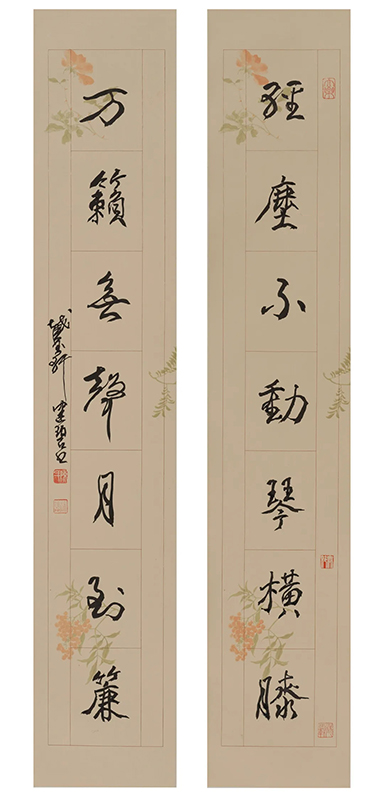 輕塵不動琴橫膝
万籟無聲月到簾